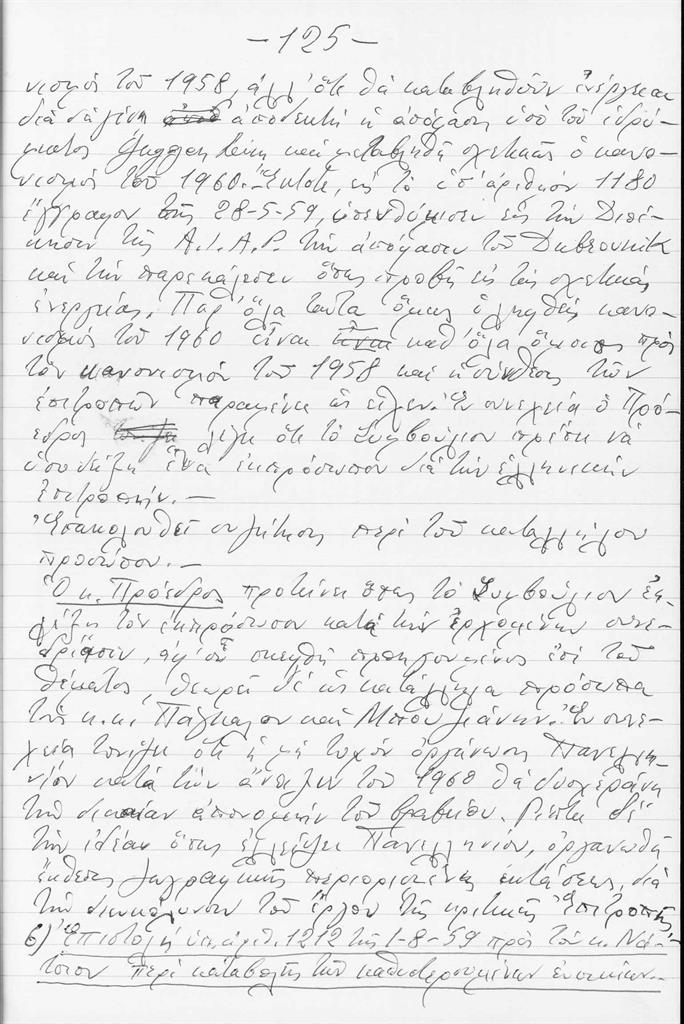 -125-
νισμός τοῦ 1958, ἀλλ' ὅτι θά καταβληθοῦν ἐνέργειαι
διά νά γίνῃ ἀποδεκτή ἡ ἀπόφασις ὑπό τοῦ ἱδρύ-
ματος Γκούγκενχαϊμ καί μεταβληθῇ σχετικῶς ὁ κανο-
νισμός τοῦ 1960. Ἔκτοτε, εἰς τό ὑπ' ἀριθμόν 1180
ἔγγραφον τῆς 28-5-59, ὑπενθύμισεν εἰς τήν Διοί-
κησιν τῆς A.I.A.P. τήν ἀπόφασιν τοῦ Dubrovnik
καί τήν παρεκάλεσεν ὅπως προβῇ εἰς τάς σχετικάς
ἐνεργείας. Παρ' ὅλα ταῦτα ὅμως ὁ ληφθείς κανο-
νισμός τοῦ 1960 εἶναι καθ' ὅλα ὅμοιος πρός
τόν κανονισμόν τοῦ 1958 καί ἡ σύνθεσις τῶν
ἐπιτροπῶν παραμένει ὡς εἶχεν. Ἐν συνεχείᾳ ὁ Πρό-
εδρος λέγει ὅτι τό Συμβούλιον πρέπει νά
ὑποδείξῃ ἕνα ἐκπρόσωπον διά τήν ἑλληνικήν
ἐπιτροπήν.-
Ἐπακολουθεῖ συζήτησις περί τοῦ καταλλήλου
προσώπου.-
Ὁ κ. Πρόεδρος προτείνει ὅπως τό Συμβούλιον ἐκ-
λέξῃ τόν ἐκπρόσωπον κατά τήν ἐρχομένην συνε-
δρίασιν, ἀφ' οὗ σκεφθῇ προηγουμένως ἐπί τοῦ
θέματος, θεωρεῖ δέ ὡς κατάλληλα πρόσωπα
τούς κ.κ. Πάγκαλον καί Μπουζιάνην. Ἐν συνε-
χείᾳ τονίζει ὅτι ἡ μή τυχόν ὀργάνωσις Πανελλη-
νίου κατά τήν ἄνοιξιν τοῦ 1960 θά δυσχεράνῃ
τήν δικαίαν ἀπονομήν τοῦ βραβείου. Ρίπτει δέ
τήν ἰδέαν ὅπως ἐλλείψει Πανελληνίου, ὀργανωθῇ
ἔκθεσις ζωγραφικῆς περιορισμένης ἐκτάσεως, διά
τήν διευκόλυνσιν τοῦ ἔργου τῆς κριτικῆς Ἐπιτροπῆς.
6) Ἐπιστολή ὑπ' ἀριθ. 1212 τῆς 1-8-59 πρός τόν κ. Νά-
τσιον περί καταβολῆς τῶν καθυστερουμένων ἐνοικίων.-